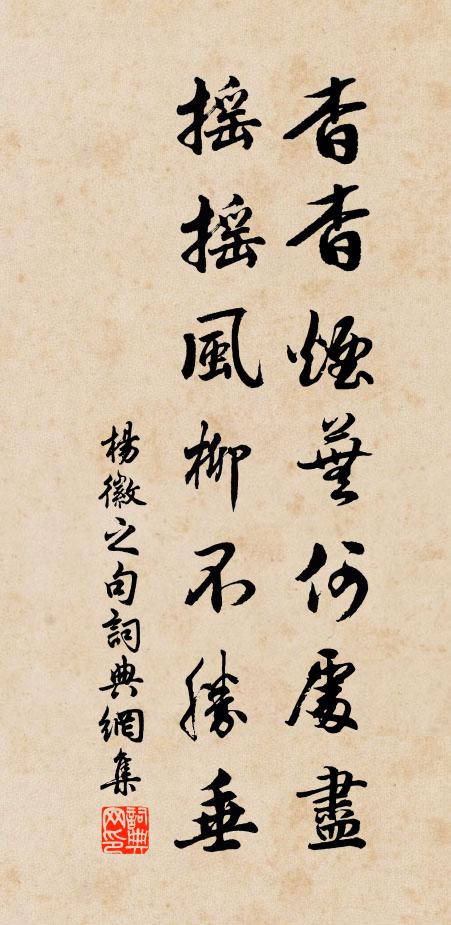 杳杳煙蕪何處盡
搖搖風柳不勝垂
楊徽之句詞典網集
詞典网印